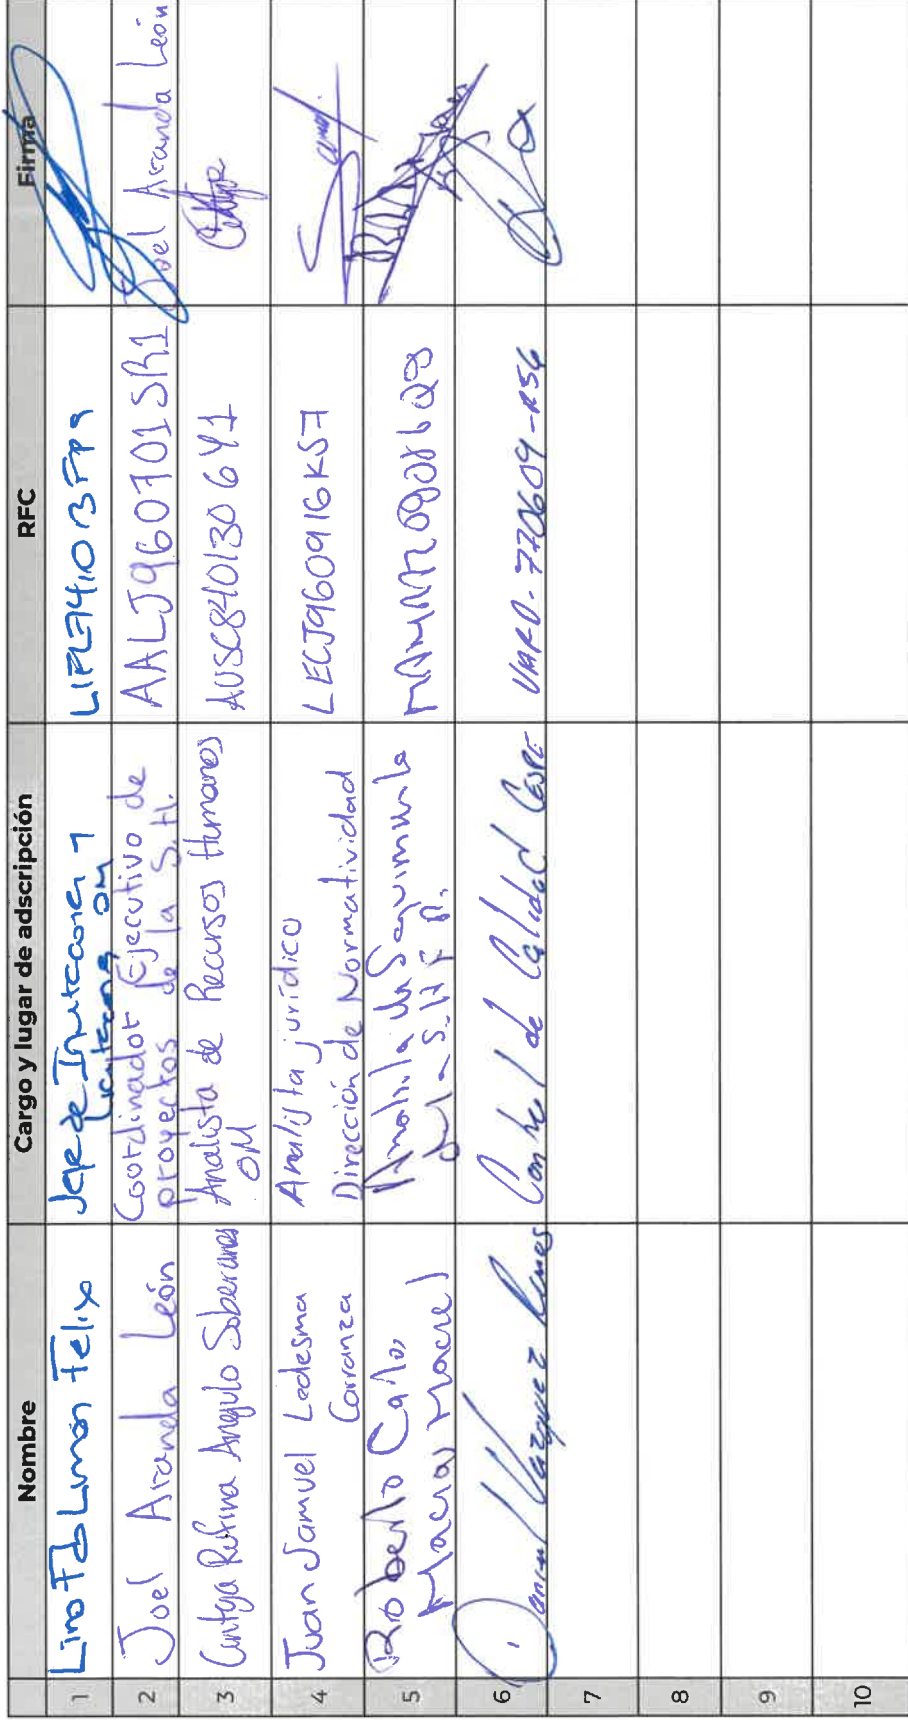 Nombre Cargo y lugar de adscripción RFC Firma
1 Lino Fdo Limon Felix Jefe de Invitaciones y Licitaciones OM
2 Joel Aranda León Coordinador Ejecutivo de proyectos de la S.H. AALJ960701SR1 Joel Aranda León
3 Cintya Rufina Angulo Soberanes Analista de Recursos Humanos OM AUSC8401306Y1
4 Juan Samuel Ledesma Carranza Analista jurídico Dirección de Normatividad LECJ960916KS7
5 Roberto Carlos Macial
6 Daniel Vazquez Control de Calidad CESPE
7
8
9
10